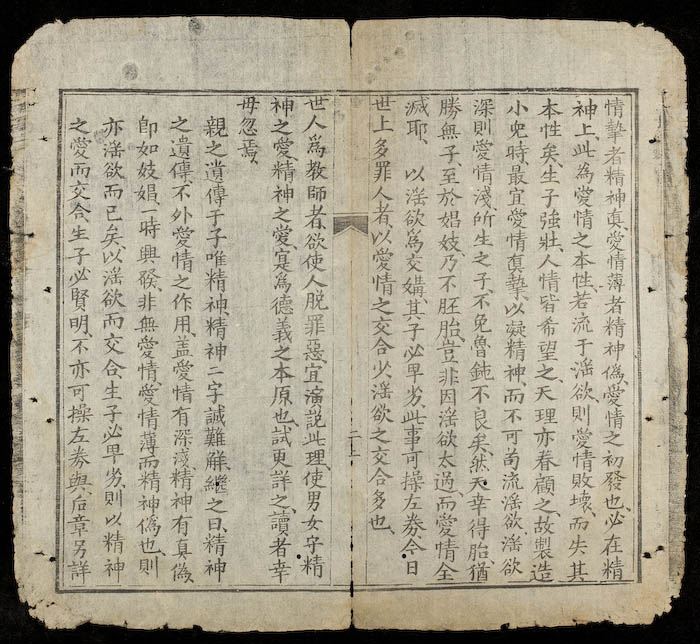 情摯者精神真、愛情薄者精神偽、愛情之初發也、必在精
神上、此為愛情之本性、若流于淫欲、則愛情敗壞、而失其
本性矣、生子強壯、人情皆希望之、天理亦眷顧之、故製造
小兒時、最宜愛情真摯、以凝精神、而不可苟流淫欲、淫欲
深則愛情淺、所生之子、不免魯鈍不良矣、然天幸得胎、猶
勝無子、至於娼妓、乃不胚胎、豈非因淫欲太過、而愛情全
滅耶、以淫欲爲交媾、其子必卑劣、此事可操左券、今日
世上多罪人者、以愛情之交合少、淫欲之交合多也、
世人爲教師者、欲使人脱罪惡、宜演説此理、使男女守精
神之愛、精神之愛、寔為德義之本原也、試更詳之、讀者幸
毋忽焉、
親之遺傳于子、唯精神、精神二字、誠難解、繼之曰、精神
之遺傳、不外愛情之作用、盖愛情有深淺、精神有真偽、
即如妓娼、一時興發、非無愛情、愛情薄而精神偽也、則
亦淫欲而已矣、以淫欲而交合、生子必卑劣、則以精神
之愛而交合、生子必賢明、不亦可操左券與、后章另詳